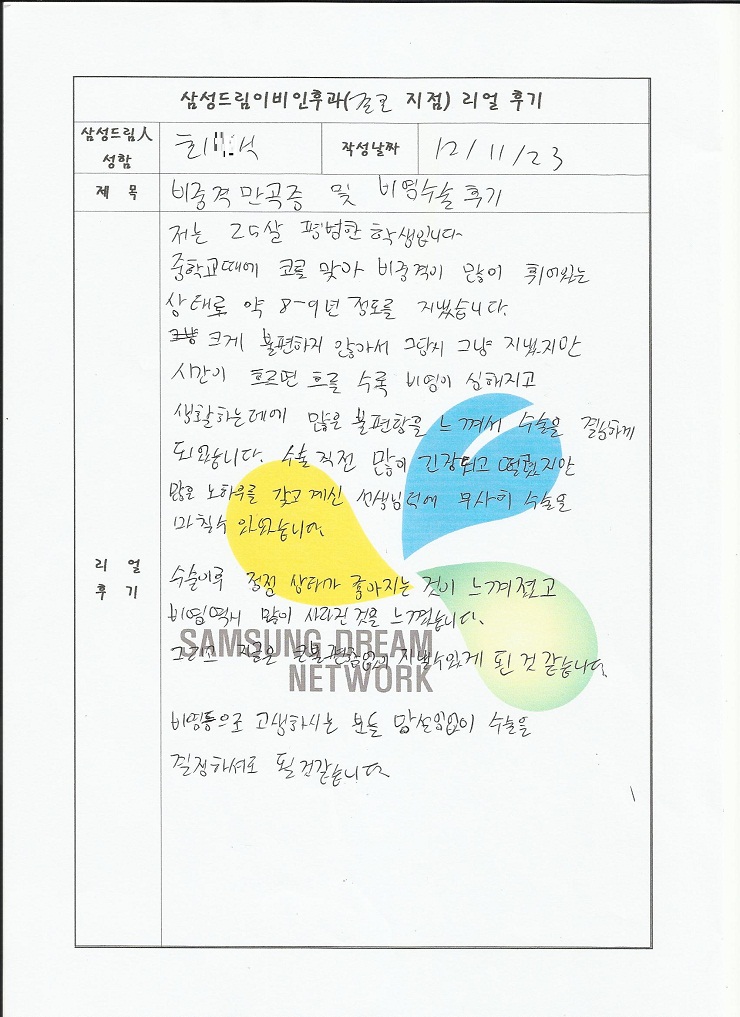 삼성드림이비인후과(종로 지점) 리얼 후기
삼성드림人 성함
최 석
작성날짜
12/11/23
제 목
비중격만곡증 및 비염수술 후기
리 얼 후 기
저는 25살 평범한 학생입니다.
중학교때에 코를 맞아 비중격이 많이 휘어있는
상태로 약 8~9년 정도를 지냈습니다.
크게 불편하지 않아서 그당시 그냥 지냈지만
시간이 흐르면 흐를 수록 비염이 심해지고
생활하는데에 많은 불편함을 느껴서 수술을 결심하게
되었습니다. 수술 직전 많이 긴장되고 떨렸지만
많은 노하우를 갖고 계신 선생님덕에 무사히 수술을
마칠수 있었습니다.
수술이후 점점 상태가 좋아지는 것이 느껴졌고
비염역시 많이 사라진 것을 느꼈습니다.
그리고 지금은 큰불편함없이 지낼수있게 된 것 같습니다.
SAMSUNG DREAM
NETWORK
비염등으로 고생하시는 분들 망설임없이 수술을
결정하셔도 될것같습니다.